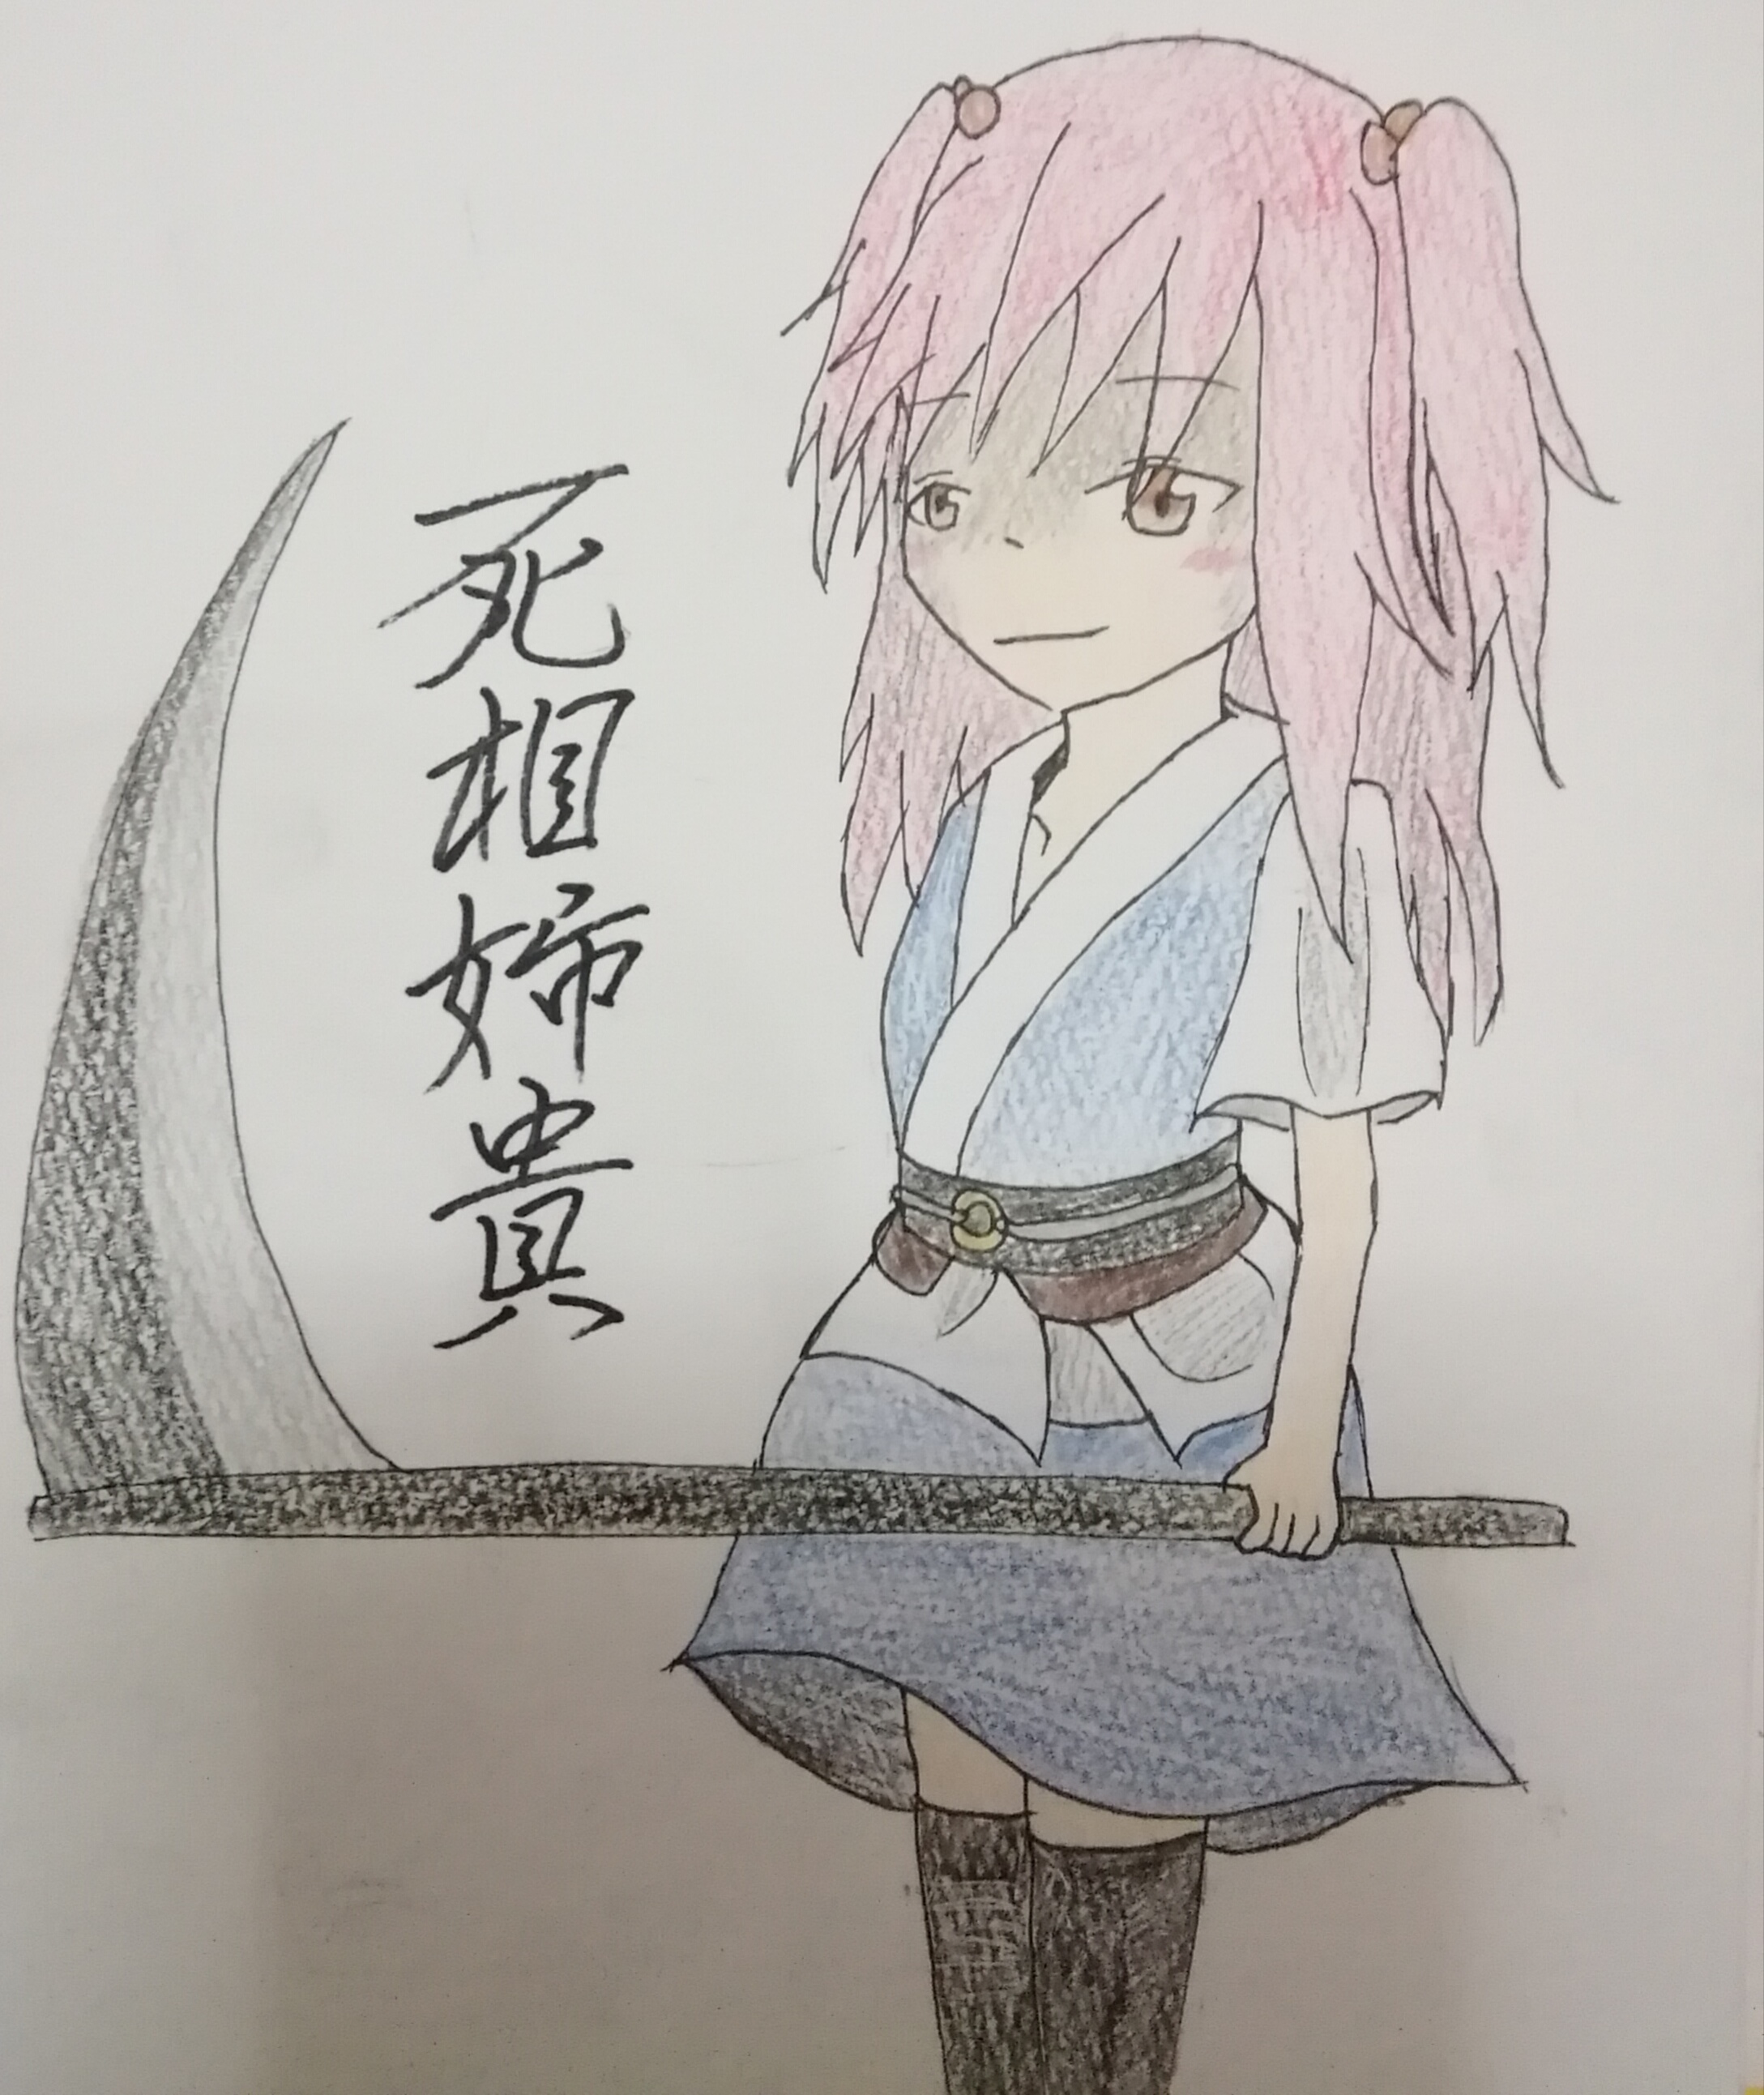 死相姉貴